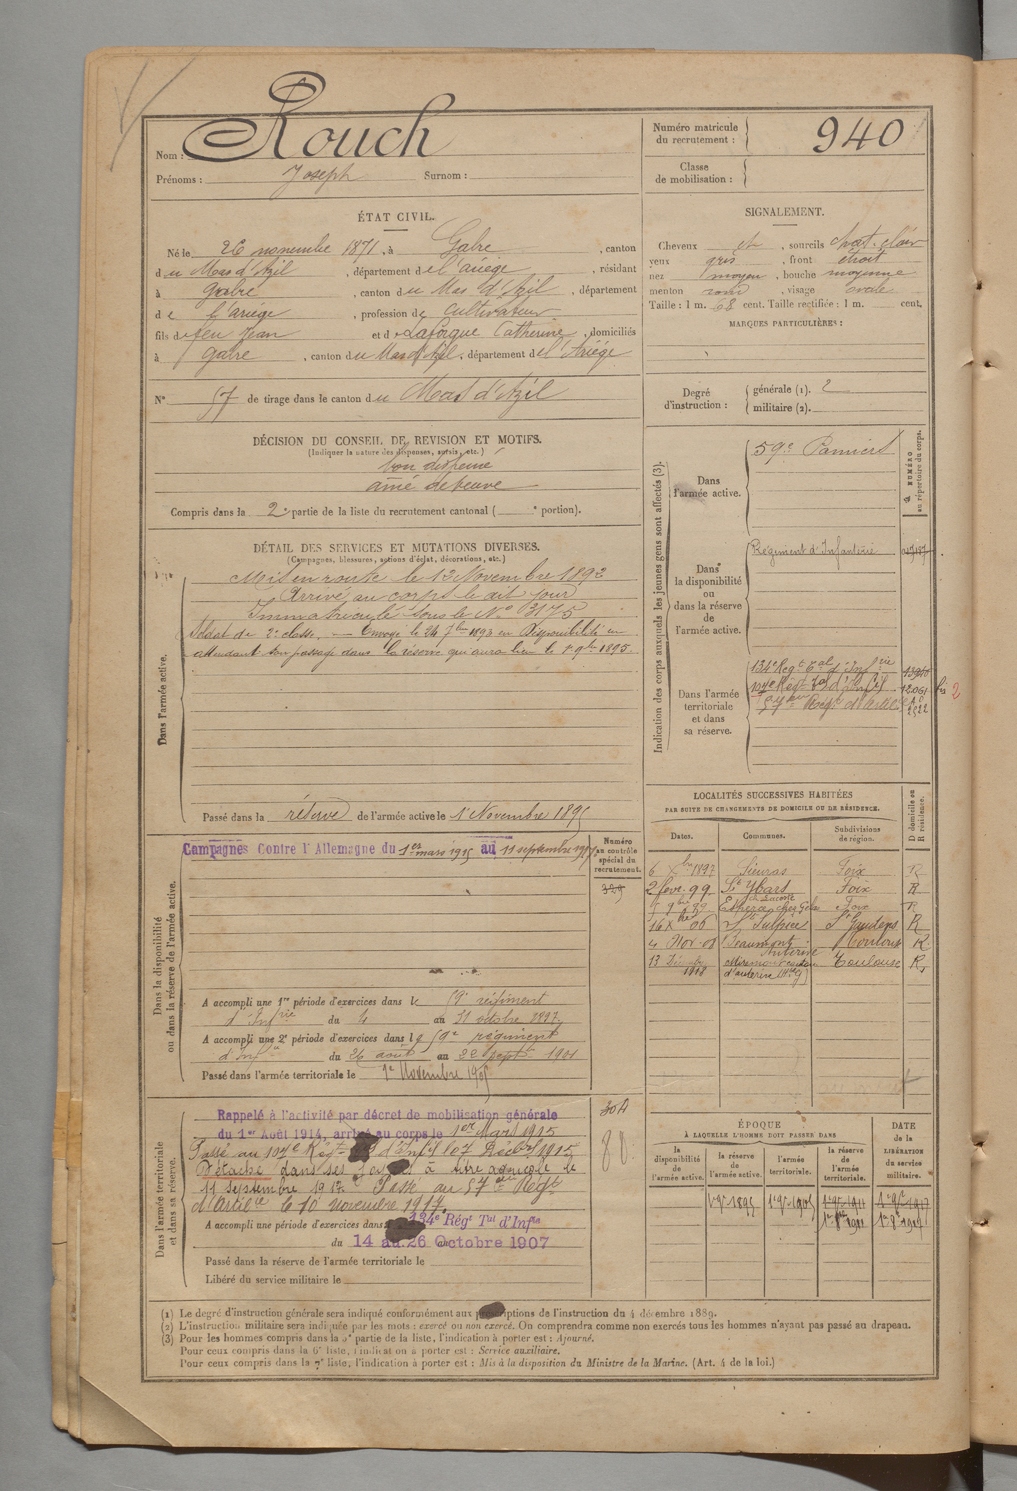 Nom : Rouch
Prénoms : Joseph Surnom :
Numéro matricule du recrutement : 940
Classe de mobilisation :
ÉTAT CIVIL.
Né le 26 novembre 1871, à Gabre, canton
du Mas d'Azil, département de l'ariège, résidant
à gabre, canton du Mas d'Azil, département
de l'ariège, profession de cultivateur
fils de feu Jean et de Laforgue Catherine, domiciliés
à gabre, canton du Mas d'Azil, département de l'Ariège
N° 57 de tirage dans le canton du Mas d'Azil
SIGNALEMENT.
Cheveux et, sourcils chat. clair
yeux gris, front étroit
nez moyen, bouche moyenne
menton rond, visage ovale
Taille : 1 m. 68 cent. Taille rectifiée : 1 m. cent.
MARQUES PARTICULIÈRES :
Degré d'instruction : générale (1). 2
militaire (2).
DÉCISION DU CONSEIL DE REVISION ET MOTIFS.
(Indiquer la nature des dispenses, sursis, etc.)
bon dispensé
aîné de veuve
Compris dans la 2e partie de la liste du recrutement cantonal ( e portion).
DÉTAIL DES SERVICES ET MUTATIONS DIVERSES.
(Campagnes, blessures, actions d'éclat, décorations, etc.)
Dans l'armée active.
Mis en route le 12 Novembre 1892
Arrivé au corps le dit jour
Immatriculé sous le N° 3175
Soldat de 2e classe. — Envoyé le 24 7bre 1893 en Disponibilité en
attendant son passage dans la réserve qui aura lieu le 1er 9bre 1895.
Passé dans la réserve de l'armée active le 1er Novembre 1895
Dans la disponibilité ou dans la réserve de l'armée active.
Campagnes Contre l'Allemagne du 1er mars 1915 au 11 septembre 1917
Numéro au contrôle spécial du recrutement.
A accompli une 1re période d'exercices dans le 59e régiment
d'Infrie du 4 au 31 octobre 1897
A accompli une 2e période d'exercices dans le 59e régiment
d'Infie du 26 août au 22 septe 1901
Passé dans l'armée territoriale le 1er Novembre 1905
Dans l'armée territoriale et dans sa réserve.
Rappelé à l'activité par décret de mobilisation générale
du 1er Août 1914, arrivé au corps le 1er Mars 1915
Passé au 107e Régt d'Infie le 07 Décbre 1915
Détaché dans ses foyers à titre agricole le
11 Septembre 1917. Passé au 57e Régt
d'Artilie le 10 novembre 1917.
A accompli une période d'exercices dans 134e Régt Tal d'Infie
du 14 au 26 Octobre 1907
Passé dans la réserve de l'armée territoriale le
Libéré du service militaire le
Indication des corps auxquels les jeunes gens sont affectés (3).
NUMÉRO au répertoire du corps.
Dans l'armée active. 59e Pamiers
Dans la disponibilité ou dans la réserve de l'armée active. Régiment d'Infanterie
Dans l'armée territoriale et dans sa réserve.
134e Régt Tal d'Infrie
57e Régt d'Artilie
LOCALITÉS SUCCESSIVES HABITÉES
PAR SUITE DE CHANGEMENTS DE DOMICILE OU DE RÉSIDENCE.
Dates. Communes. Subdivisions de région. D domicile ou R résidence.
6 Xbre 1897 Sieuras Foix R
2 fevr. 99 St Ybars Foix R
16 Xbre 06 St Sulpice St Gaudens R
4 Nov. 08 Beaumont Toulouse R
Toulouse R
ÉPOQUE
À LAQUELLE L'HOMME DOIT PASSER DANS
la disponibilité de l'armée active. la réserve de l'armée active. l'armée territoriale. la réserve de l'armée territoriale.
DATE de la LIBÉRATION du service militaire.
(1) Le degré d'instruction générale sera indiqué conformément aux prescriptions de l'instruction du 4 décembre 1889.
(2) L'instruction militaire sera indiquée par les mots : exercé ou non exercé. On comprendra comme non exercés tous les hommes n'ayant pas passé au drapeau.
(3) Pour les hommes compris dans la 5e partie de la liste, l'indication à porter est : Ajourné.
Pour ceux compris dans la 6e liste, l'indication à porter est : Service auxiliaire.
Pour ceux compris dans la 7e liste, l'indication à porter est : Mis à la disposition du Ministre de la Marine. (Art. 4 de la loi.)